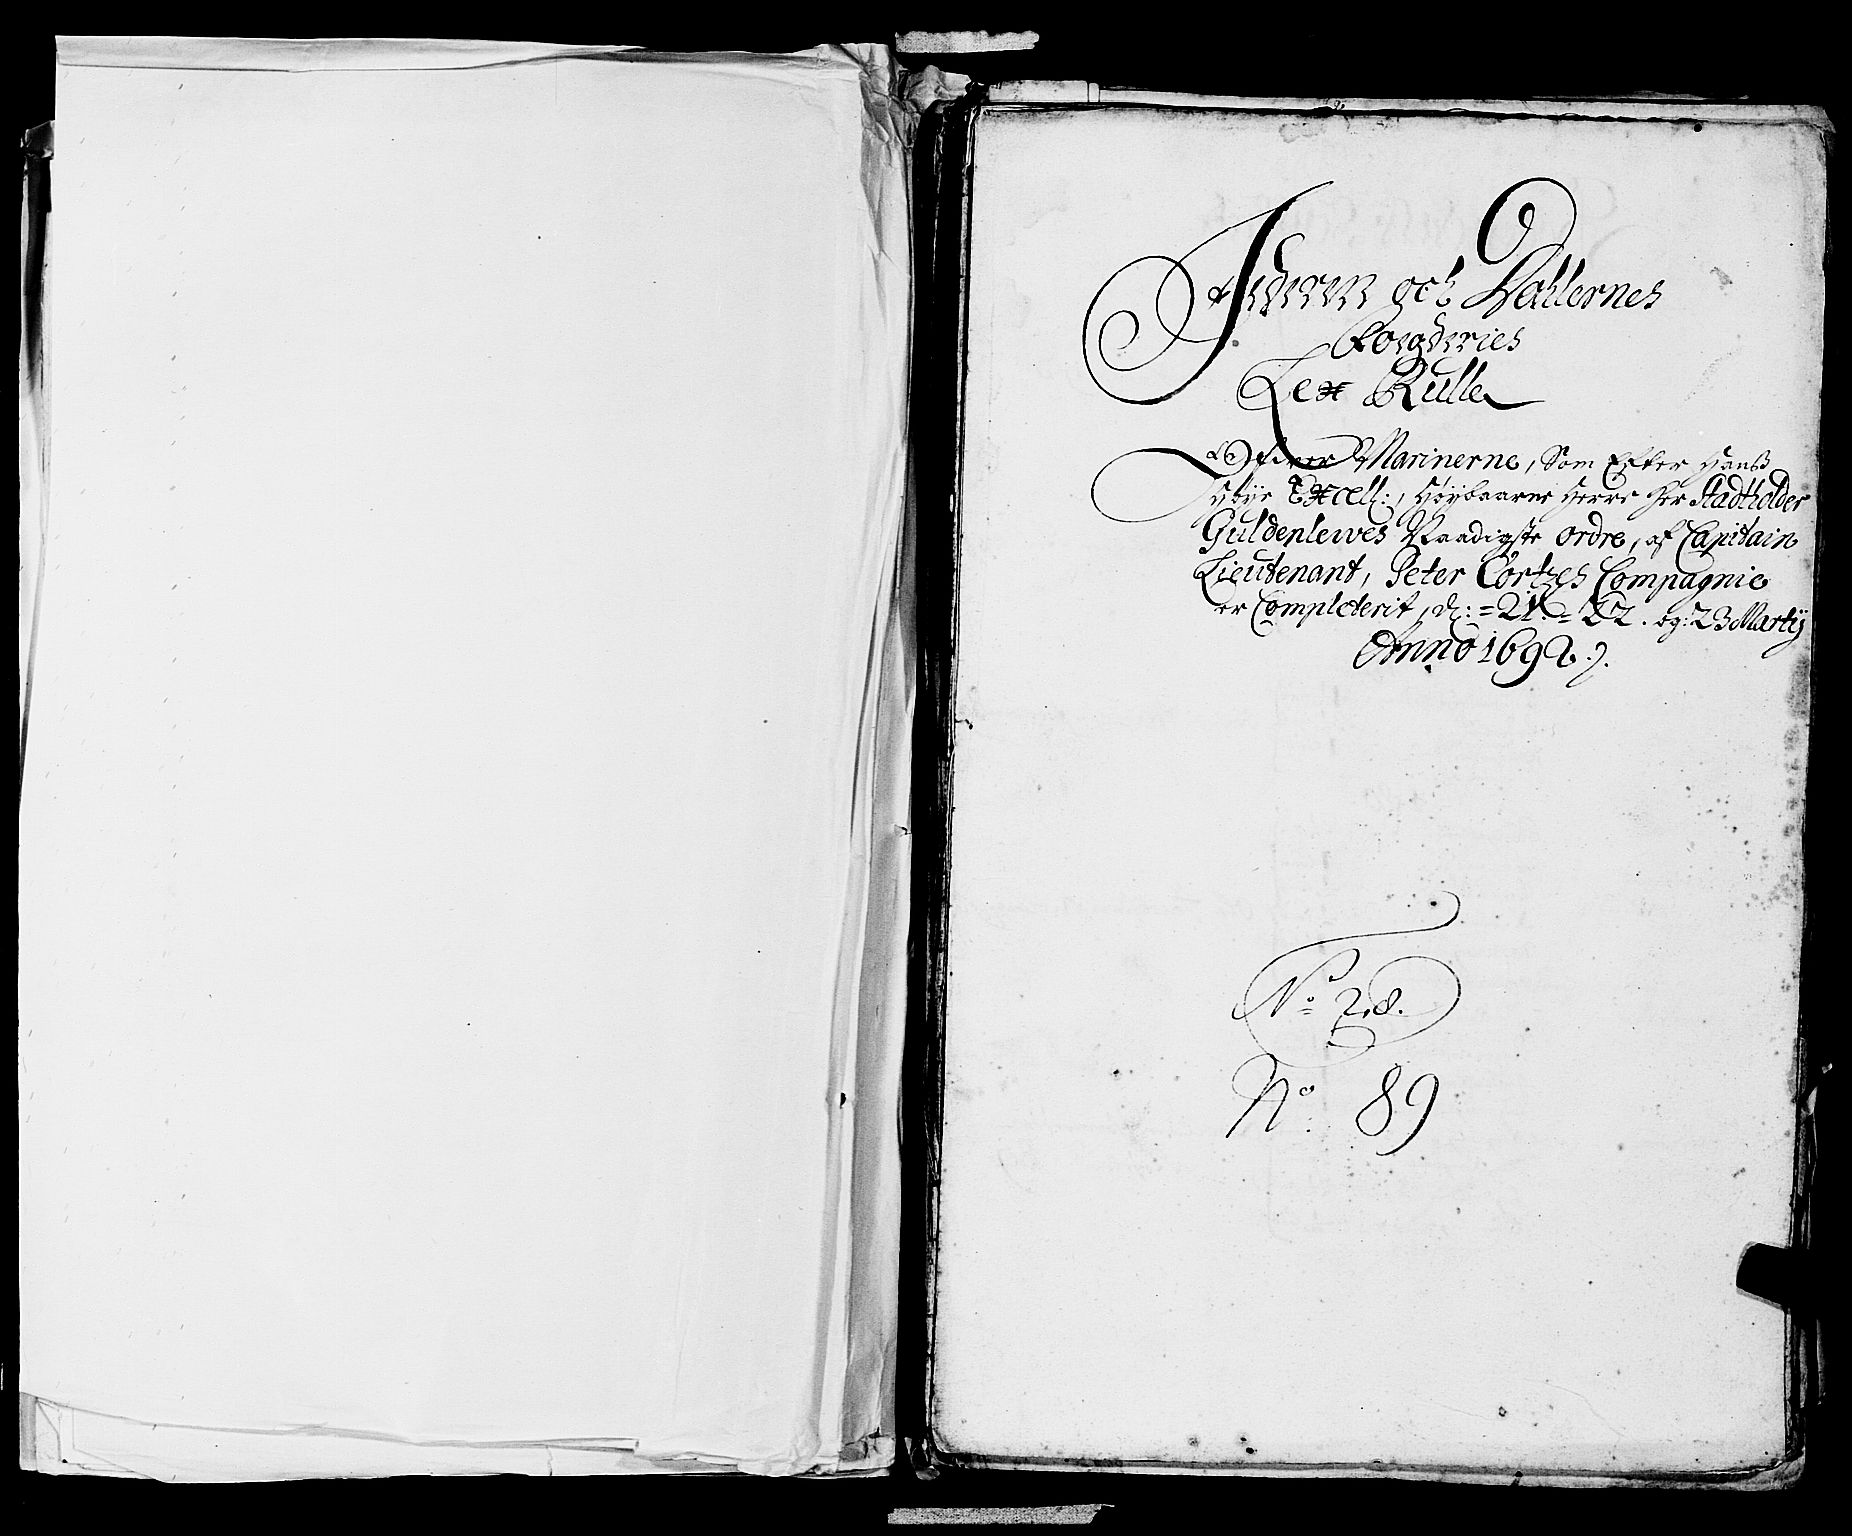 Jederen och Dahlernes
Fougderies
Lex Rulle
Ofver Marinerne, Som Efter Hanß
Høye Excell:, Høybaarne Herre Her Stadtholder
Guldenlewes Naadigste ordre, af Capitain
Lieutenant, Peter Cortzes Compagnie
er Completerit, d: =21.=22. og: 23 Martij
Anno 1692.
No 28.
No 89